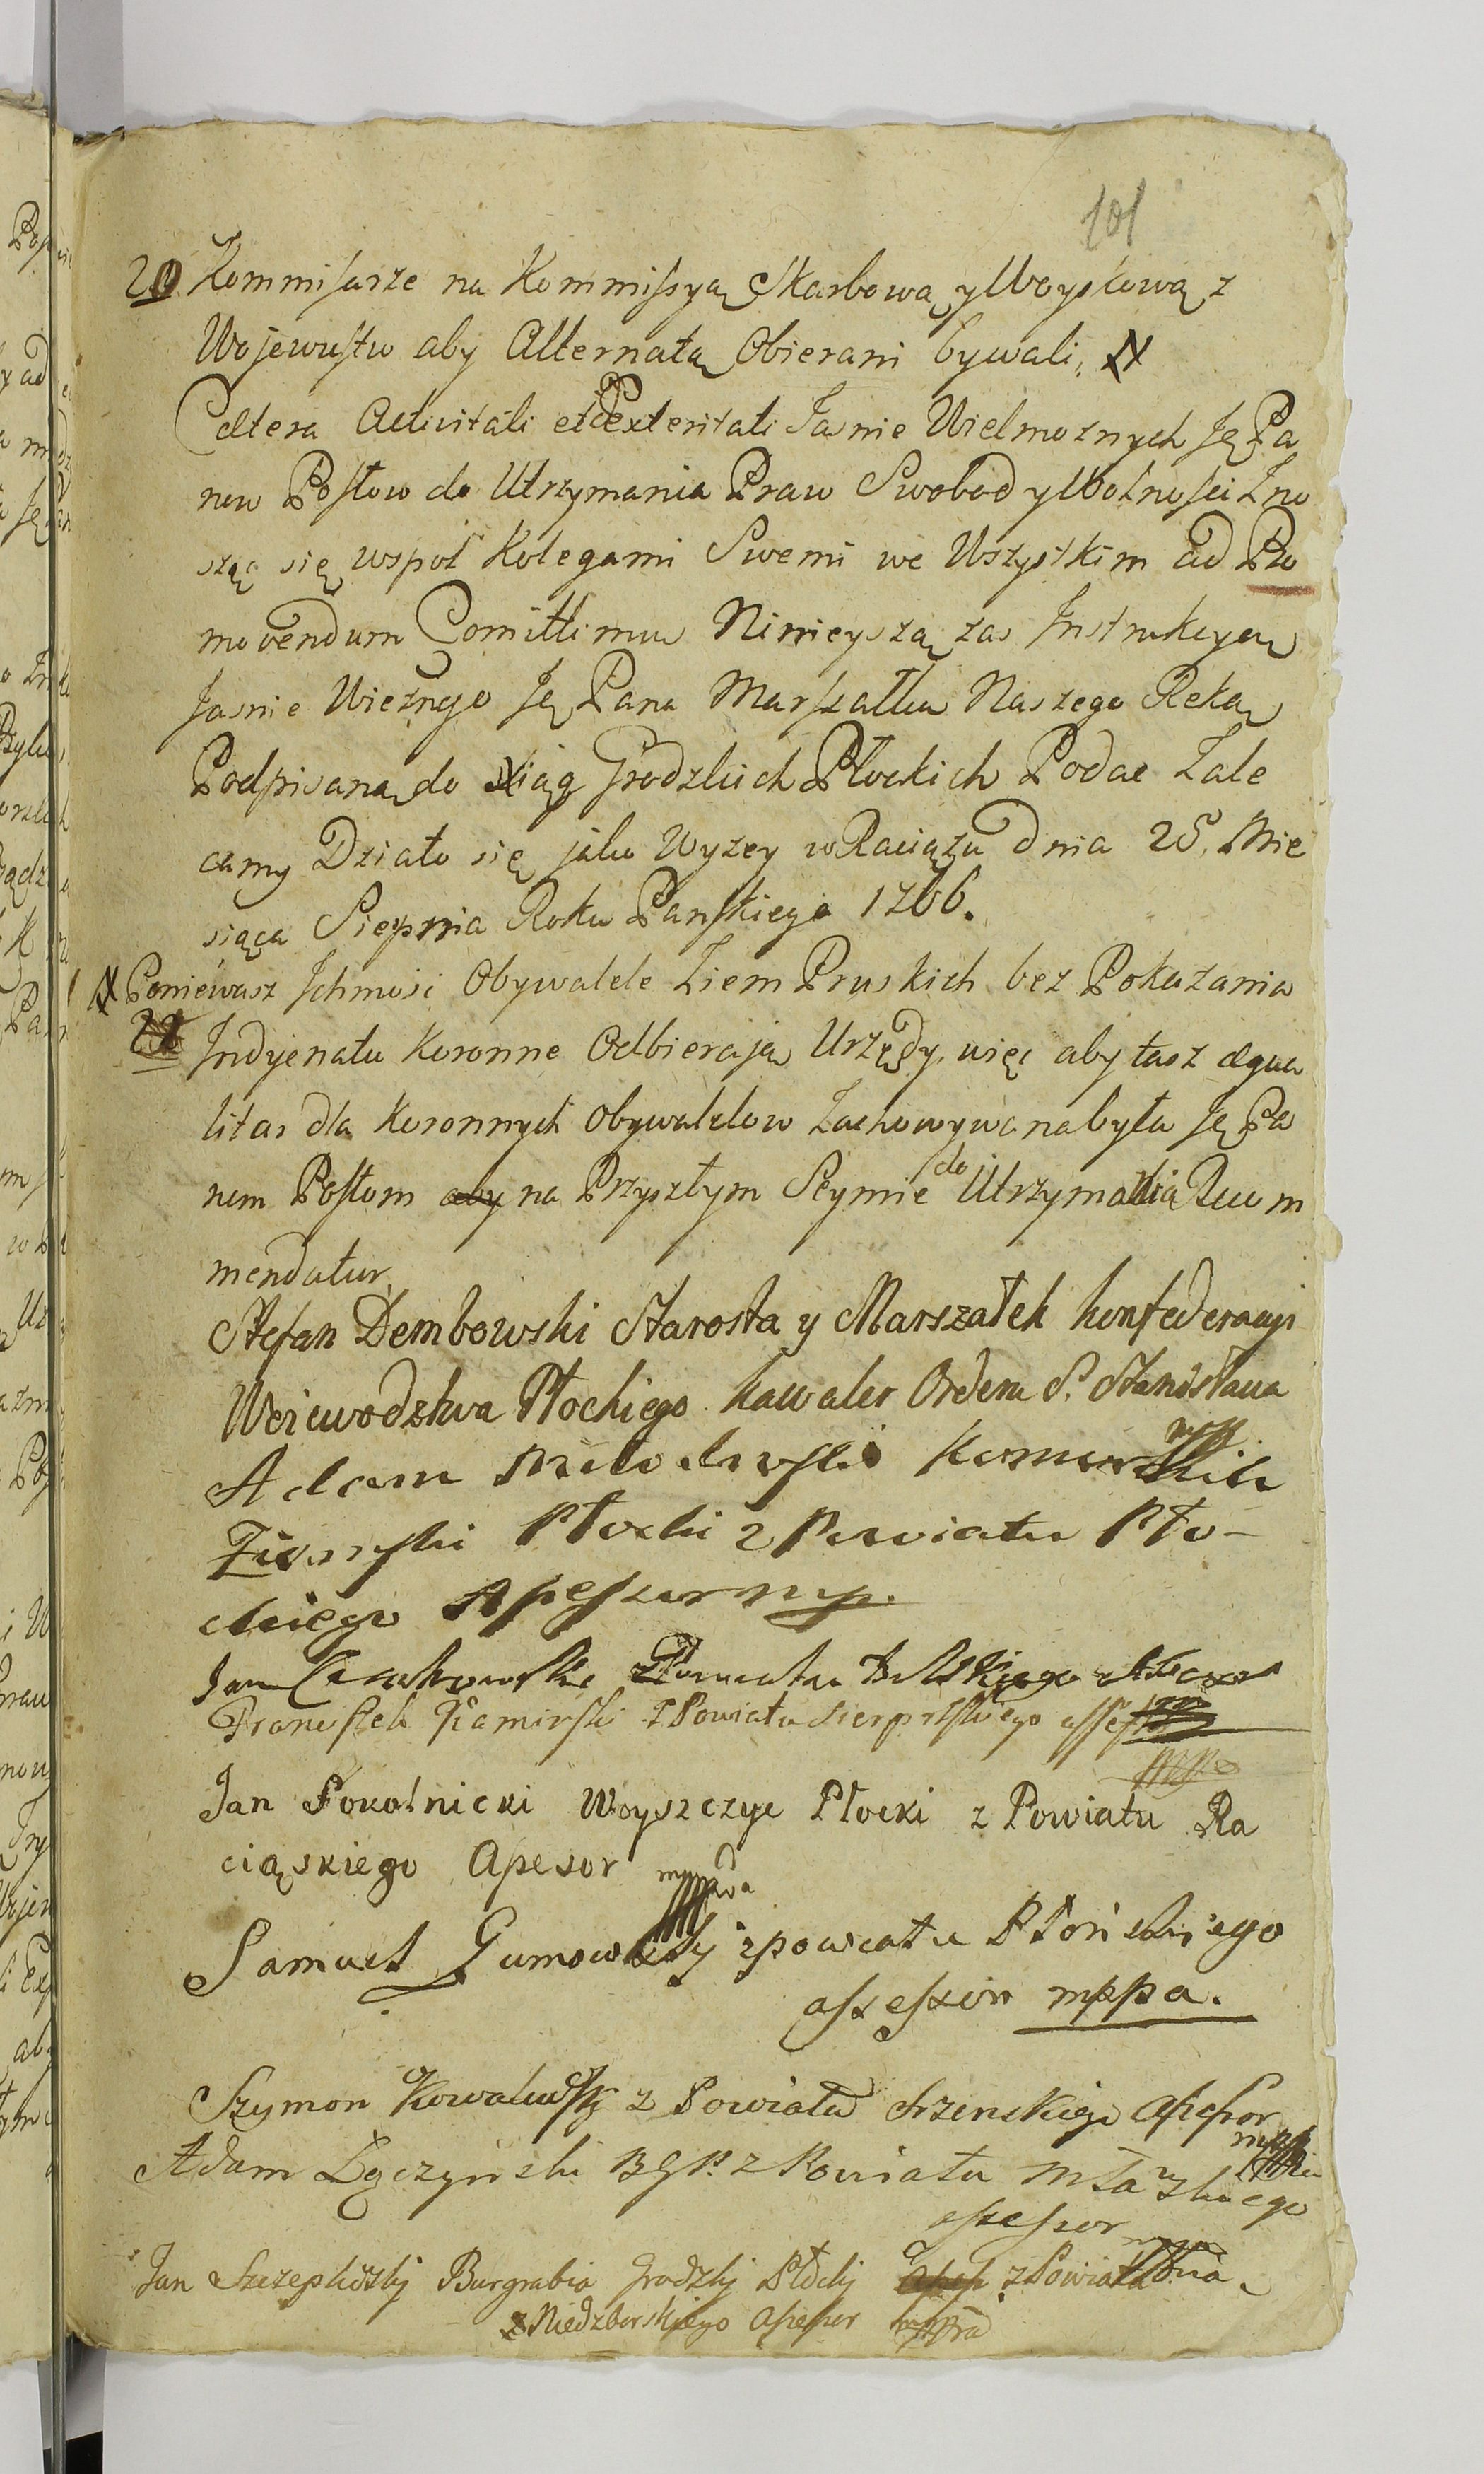 101
20 Kommisarze na Kommissyą Skarbową y Woyskową z
Wojewustw aby Alternatą Obierani bywali,
Cætera Activitati et Dexteritati Jasnie Wielmoznych Ję Pa
now Posłow do Utrzymania Praw Swobod y Wolnosci Zno
sząc się wspoł Kolegami Swemi we Wszystkim ad Pro
movendum Comittimus Ninieyszą zas Instrukcyą
Jasnie Wieznego Ję Pana Marszałka Naszego Ręką
Podpisaną do Xiąg Grodzkich Płockich Podac Zale
camy Działo się jako Wyzey w Raciążu dnia 25. Mie
siąca Sierpnia Roku Panskiego 1766.
Poniewasz Jchmosć Obywatele Ziem Pruskich bez Pokazania
21 Indyenatu Koronne Odbierają Urzędy, więc aby tasz æqua
litas dla Koronnych Obywatelow Zachowywana była Ję Pa
nom Posłom aby na Przyszłym Seymie do Utrzymania Recom
mendatur.
Stefan Dembowski Starosta y Marszałek konfederacyi
Woiewodztwa Płockiego kawaler Orderu S. Stanisława
Adam
Ziemski Płocki z Powiatu Pło-
ckiego Assessor mp.
Jan z Powiatu Bielskiego
Franciszek Kamiński z Powiatu Sierpskiego
Jan Sokolnicki Woyszczyc Płocki z Powiatu Ra
ciąskiego Assesor
Samuel Gumowski z powiatu Płońskiego
assessor mppa.
Szymon Kowalewski z Powiatu Srzenskiego Assessor
Adam Łączyński B G P. z Powiatu Mławskiego
assessor
Jan Burgrabia Grodzky Płocky z Powiatu
Niedzborskiego Assessor mppra